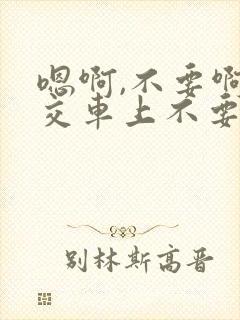 嗯啊,不要啊
交车上不要
别林斯高晋